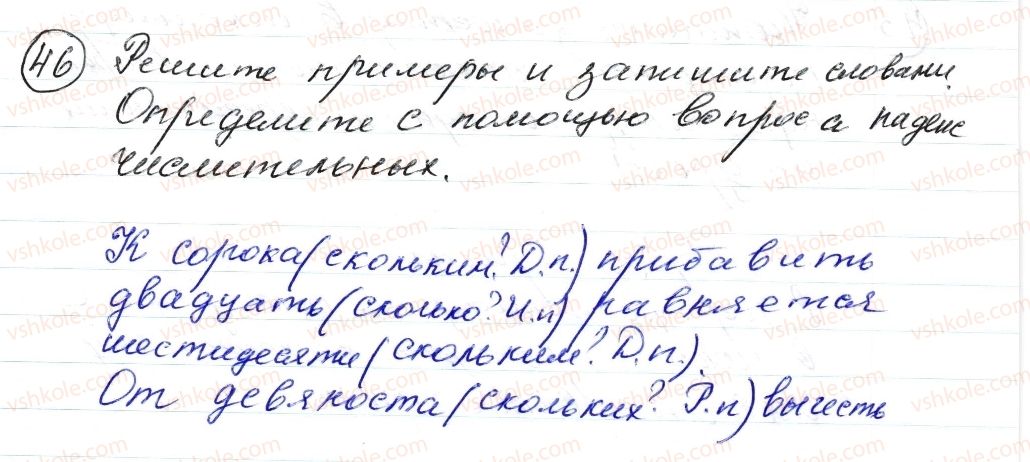 46 Решите примеры и запишите словами.
Определите с помощью вопроса падеж
числительных.
К сорока (скольким? Д.п.) прибавить
двадцать (сколько? И.п) равняется
шестидесяти (скольким? Д.п.).
От девяноста (скольких? Р.п) вычесть